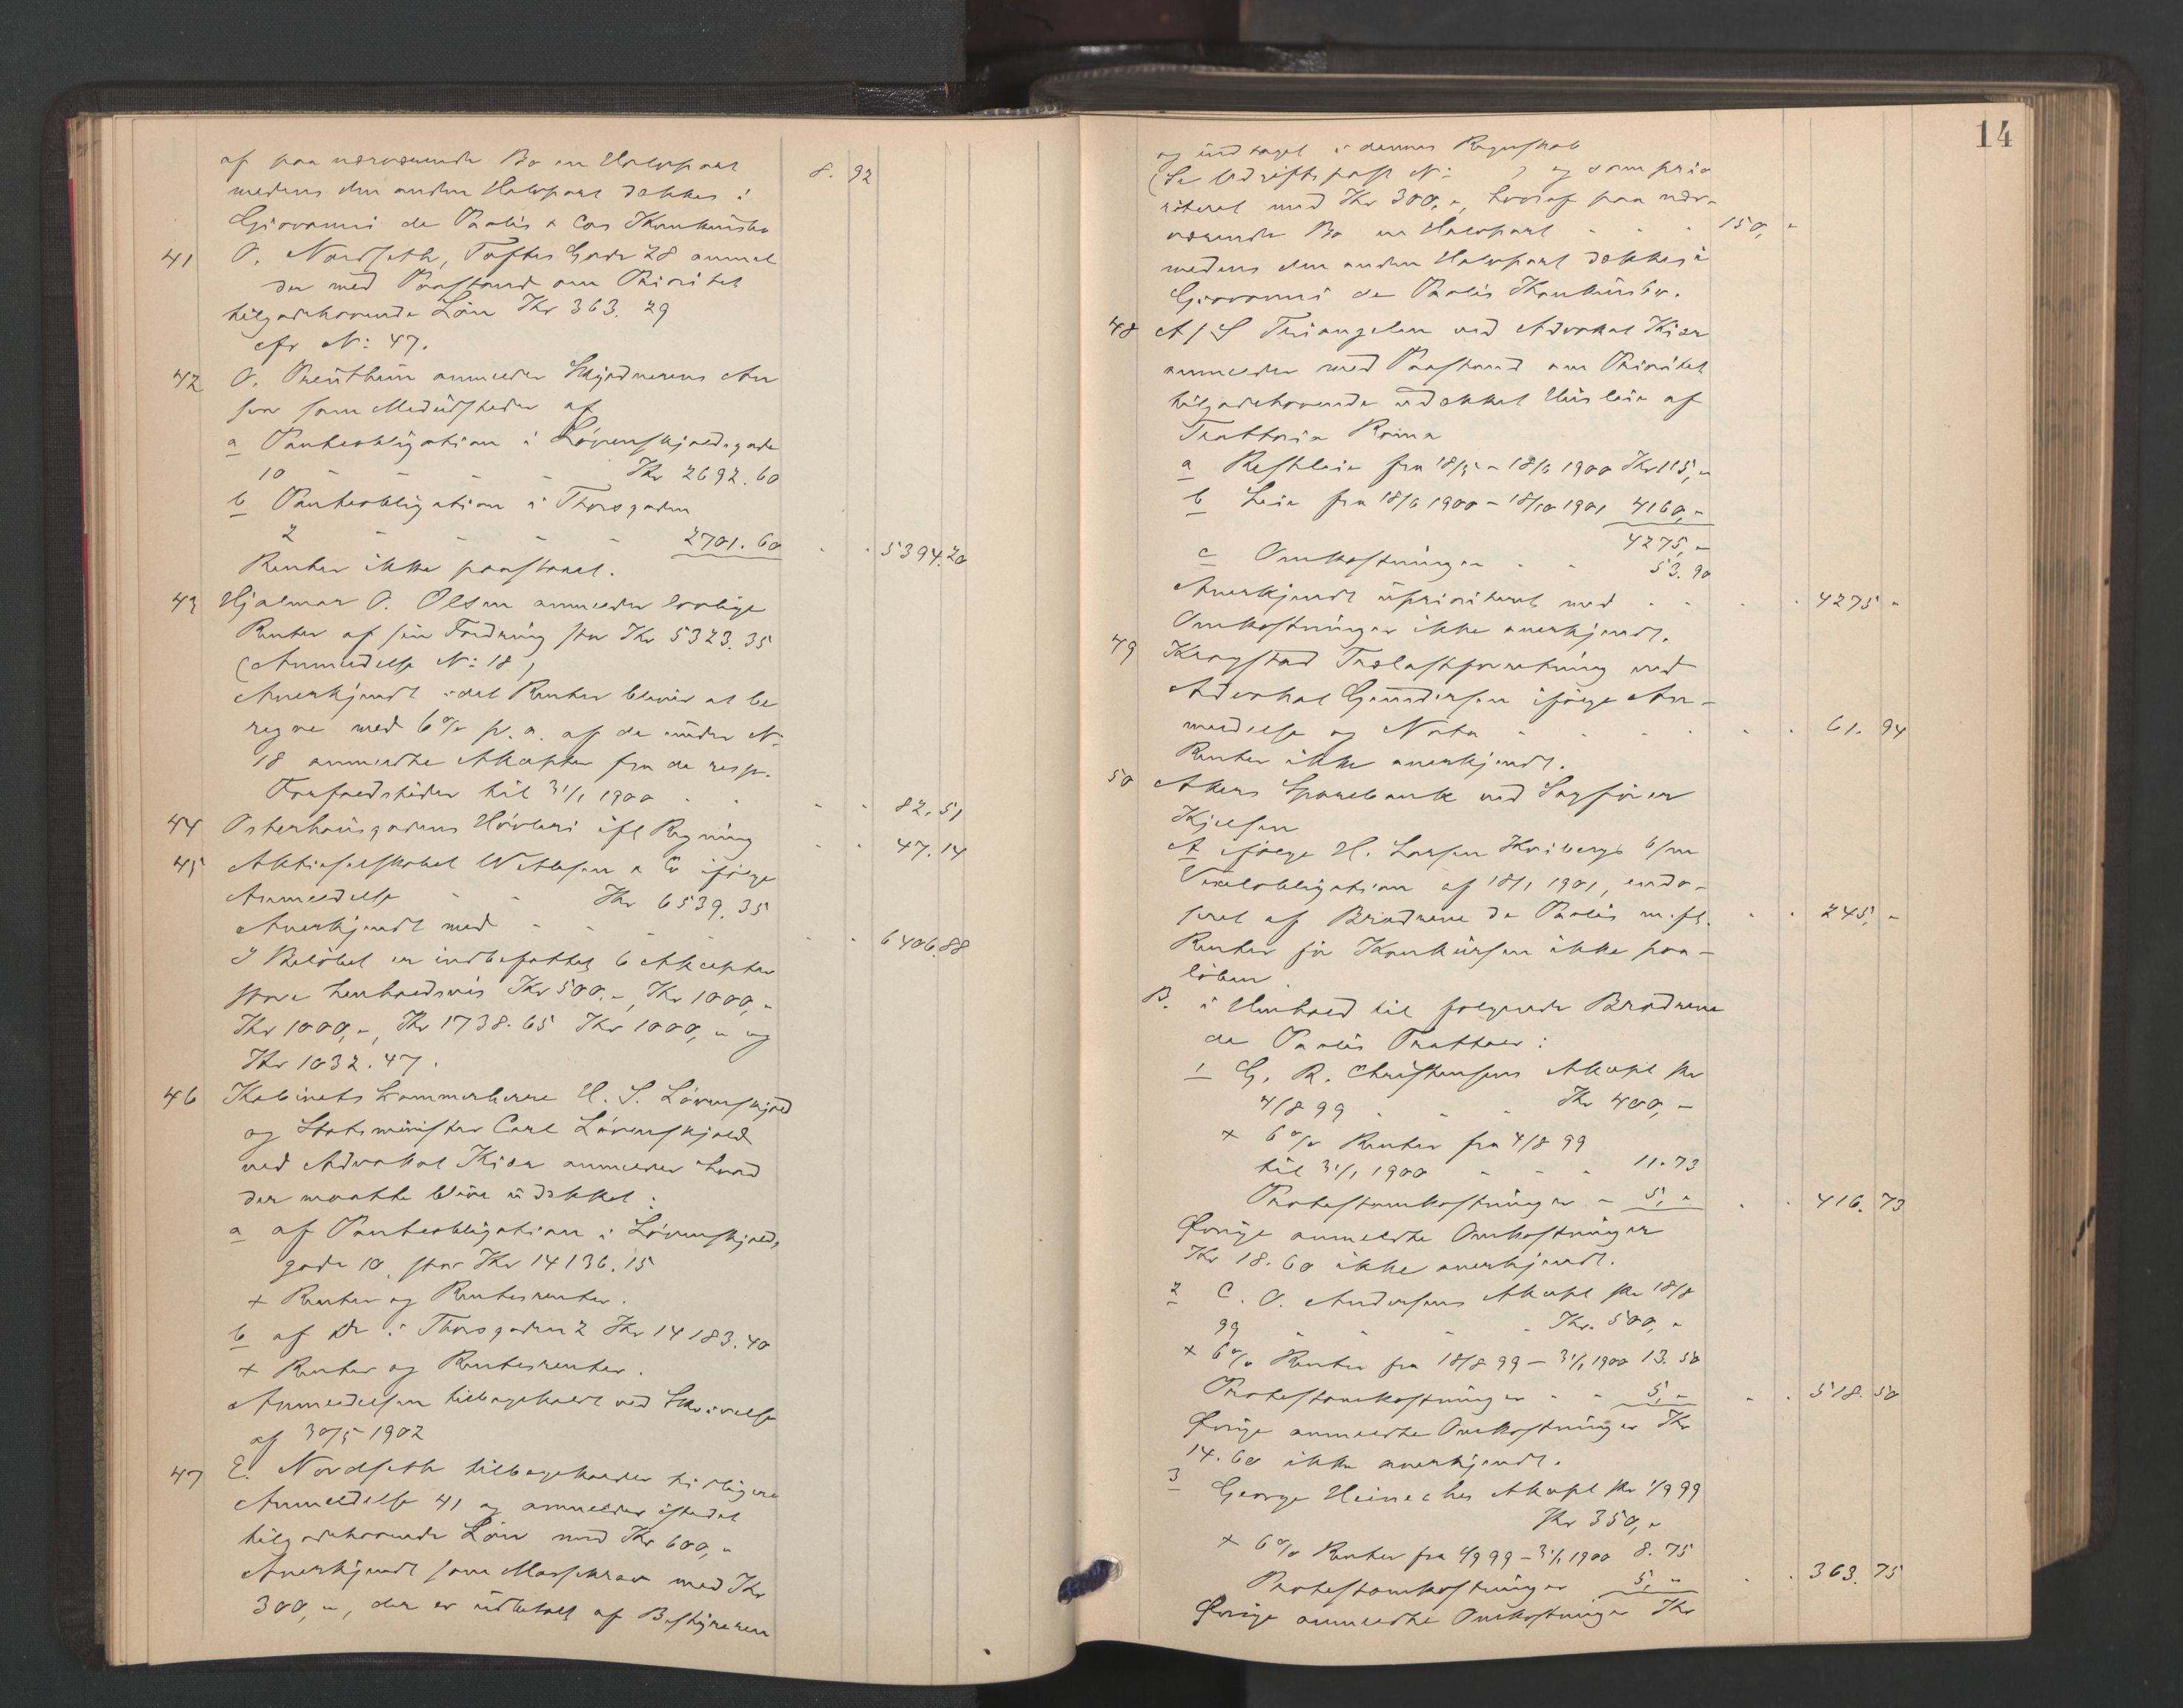 af paa nærværende Bo en Halvpart 8. 92
medens den anden Halvpart dækkes i
Giovanni de Paolis & Cos Konkursbo
41 O. Nordseth, Toftes Gade 28 anmel
der med Paastand om Prioritet
tilgodehavende Løn Kr 363. 29
cfr No: 47.
42 O. anmelder Skyldnerens An
svar som Medudsteder af
a Panteobligation i Løvenskjoldsgade
10 - - - - Kr 2692.60
b Panteobligation i Thorsgaden
2 - - - - 2701.60 - - 5394.20
Renter ikke paastaaet.
43 Hjalmar O. Olsen anmelder lovlige
Renter af sin Fordring stor Kr 5323.35
(Anmeldelse No: 18)
Anerkjendt idet Renter bliver at be
regne med 6% p. a. af de under No
18 anmeldte Akcepter fra de resp.
Forfaldstider til 31/1 1900 - - - - 82,51
44 Osterhausgadens Høvleri ifl Regning - - 47.14
45 Aktieselskabet & Co ifølge
Anmeldelse - - Kr 6539.35
Anerkjendt med - - - - - 6406.88
I Beløbet er indbefattet 6 Akcepter
store henholdsvis Kr 500.-, Kr 1000,-
Kr 1000,-, Kr 1738.65 Kr 1000,- og
Kr 1032.47.
46 Kabinetskammerherre H. S. Løvenskjold
og Statsminister Carl Løvenskjold
ved Advokat Kiær anmelder hvad
der maatte blive udækket:
a af Panteobligation i Løvenskjolds
gade 10, stor Kr 14136.15
+ Renter og Rentesrenter.
b af Do i Thorsgaden 2 Kr 14183.40
+ Renter og Rentesrenter.
Anmeldelsen tilbagekaldt ved Skrivelse
af 30/5 1902
47 E. Nordseth tilbagekalder tidligere
Anmeldelse 41 og anmelder istedet
tilgodehavende Løn med Kr 600,-
Anerkjendt som Massekrav med Kr
300,-, der er udbetalt af Bestyreren
14
og indtaget i dennes Regnskab
(Se Udgiftspost No: ) og som prio
riteret med Kr 300,-, hvoraf paa nær-
værende Bo en Halvpart - - - 150,-
medens den anden Halvpart dækkes i
Giovanni de Paolis Konkursbo.
48 A/S Triangelen ved Advokat Kiær
anmelder med Paastand om Prioritet
tilgodehavende udækket Husleie af
Trattoria Roma
a Restleie fra 18/5 - 18/6 1900 Kr 115,-
b Leie fra 18/6 1900 - 18/10 1901 4160,-
4275,-
c Omkostninger - - 53.90
Anerkjendt uprioriteret med - - - - 4275 -
Omkostninger ikke anerkjendt.
49 Krogstad Trælastforretning ved
Advokat Gundersen ifølge An-
meldelse og Nota - - - - - - 61. 94
Renter ikke anerkjendt.
50 Akers Sparebank ved Sagfører
Kjelsen
A ifølge H. Larsen 6/m
Vexelobligation af 18/1 1901, endo-
seret af Brødrene de Paolis m. fl. - - 245,-
Renter før Konkursen ikke paa-
løben
B. i Henhold til følgende Brødrene
de Paolis Trattaer:
1 G. R. Christensens Akcept pr
4/8 99 - - - Kr 400,-
+ 6% Renter fra 4/8 99
til 31/1 1900 - - - 11.73
Protestomkostninger - 5,- - - 416. 73
Øvrige anmeldte Omkostninger
Kr 18.60 ikke anerkjendt.
2 C. O. Andersens Akcept pr 18/8
99 - - - - Kr. 500,-
+ 6% Renter fra 18/8 99 - 31/1 1900 13.50
Protestomkostninger - - 5,- - - 518.50
Øvrige anmeldte Omkostninger Kr
14.60 ikke anerkjendt.
3 George Akcept pr 1/9 99
Kr 350,-
+ 6% Renter fra 1/9 99 - 31/1 1900 8.75
Protestomkostninger 5,- - - 363.75
Øvrige anmeldte Omkostninger Kr